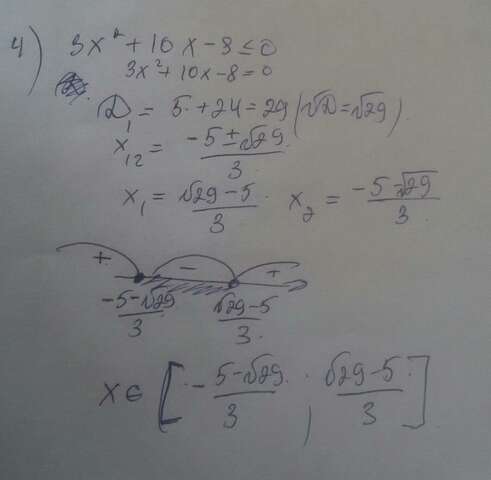 4) 3x² + 10x - 8 ≤ 0
3x² + 10x - 8 = 0
D₁ = 5 + 24 = 29 (√D = √29)
x₁₂ = (-5 ± √29)/3
x₁ = (√29 - 5)/3 x₂ = (-5 - √29)/3
+ - +
(-5 - √29)/3 (√29 - 5)/3
x ∈ [- (5 - √29)/3 , (√29 - 5)/3]